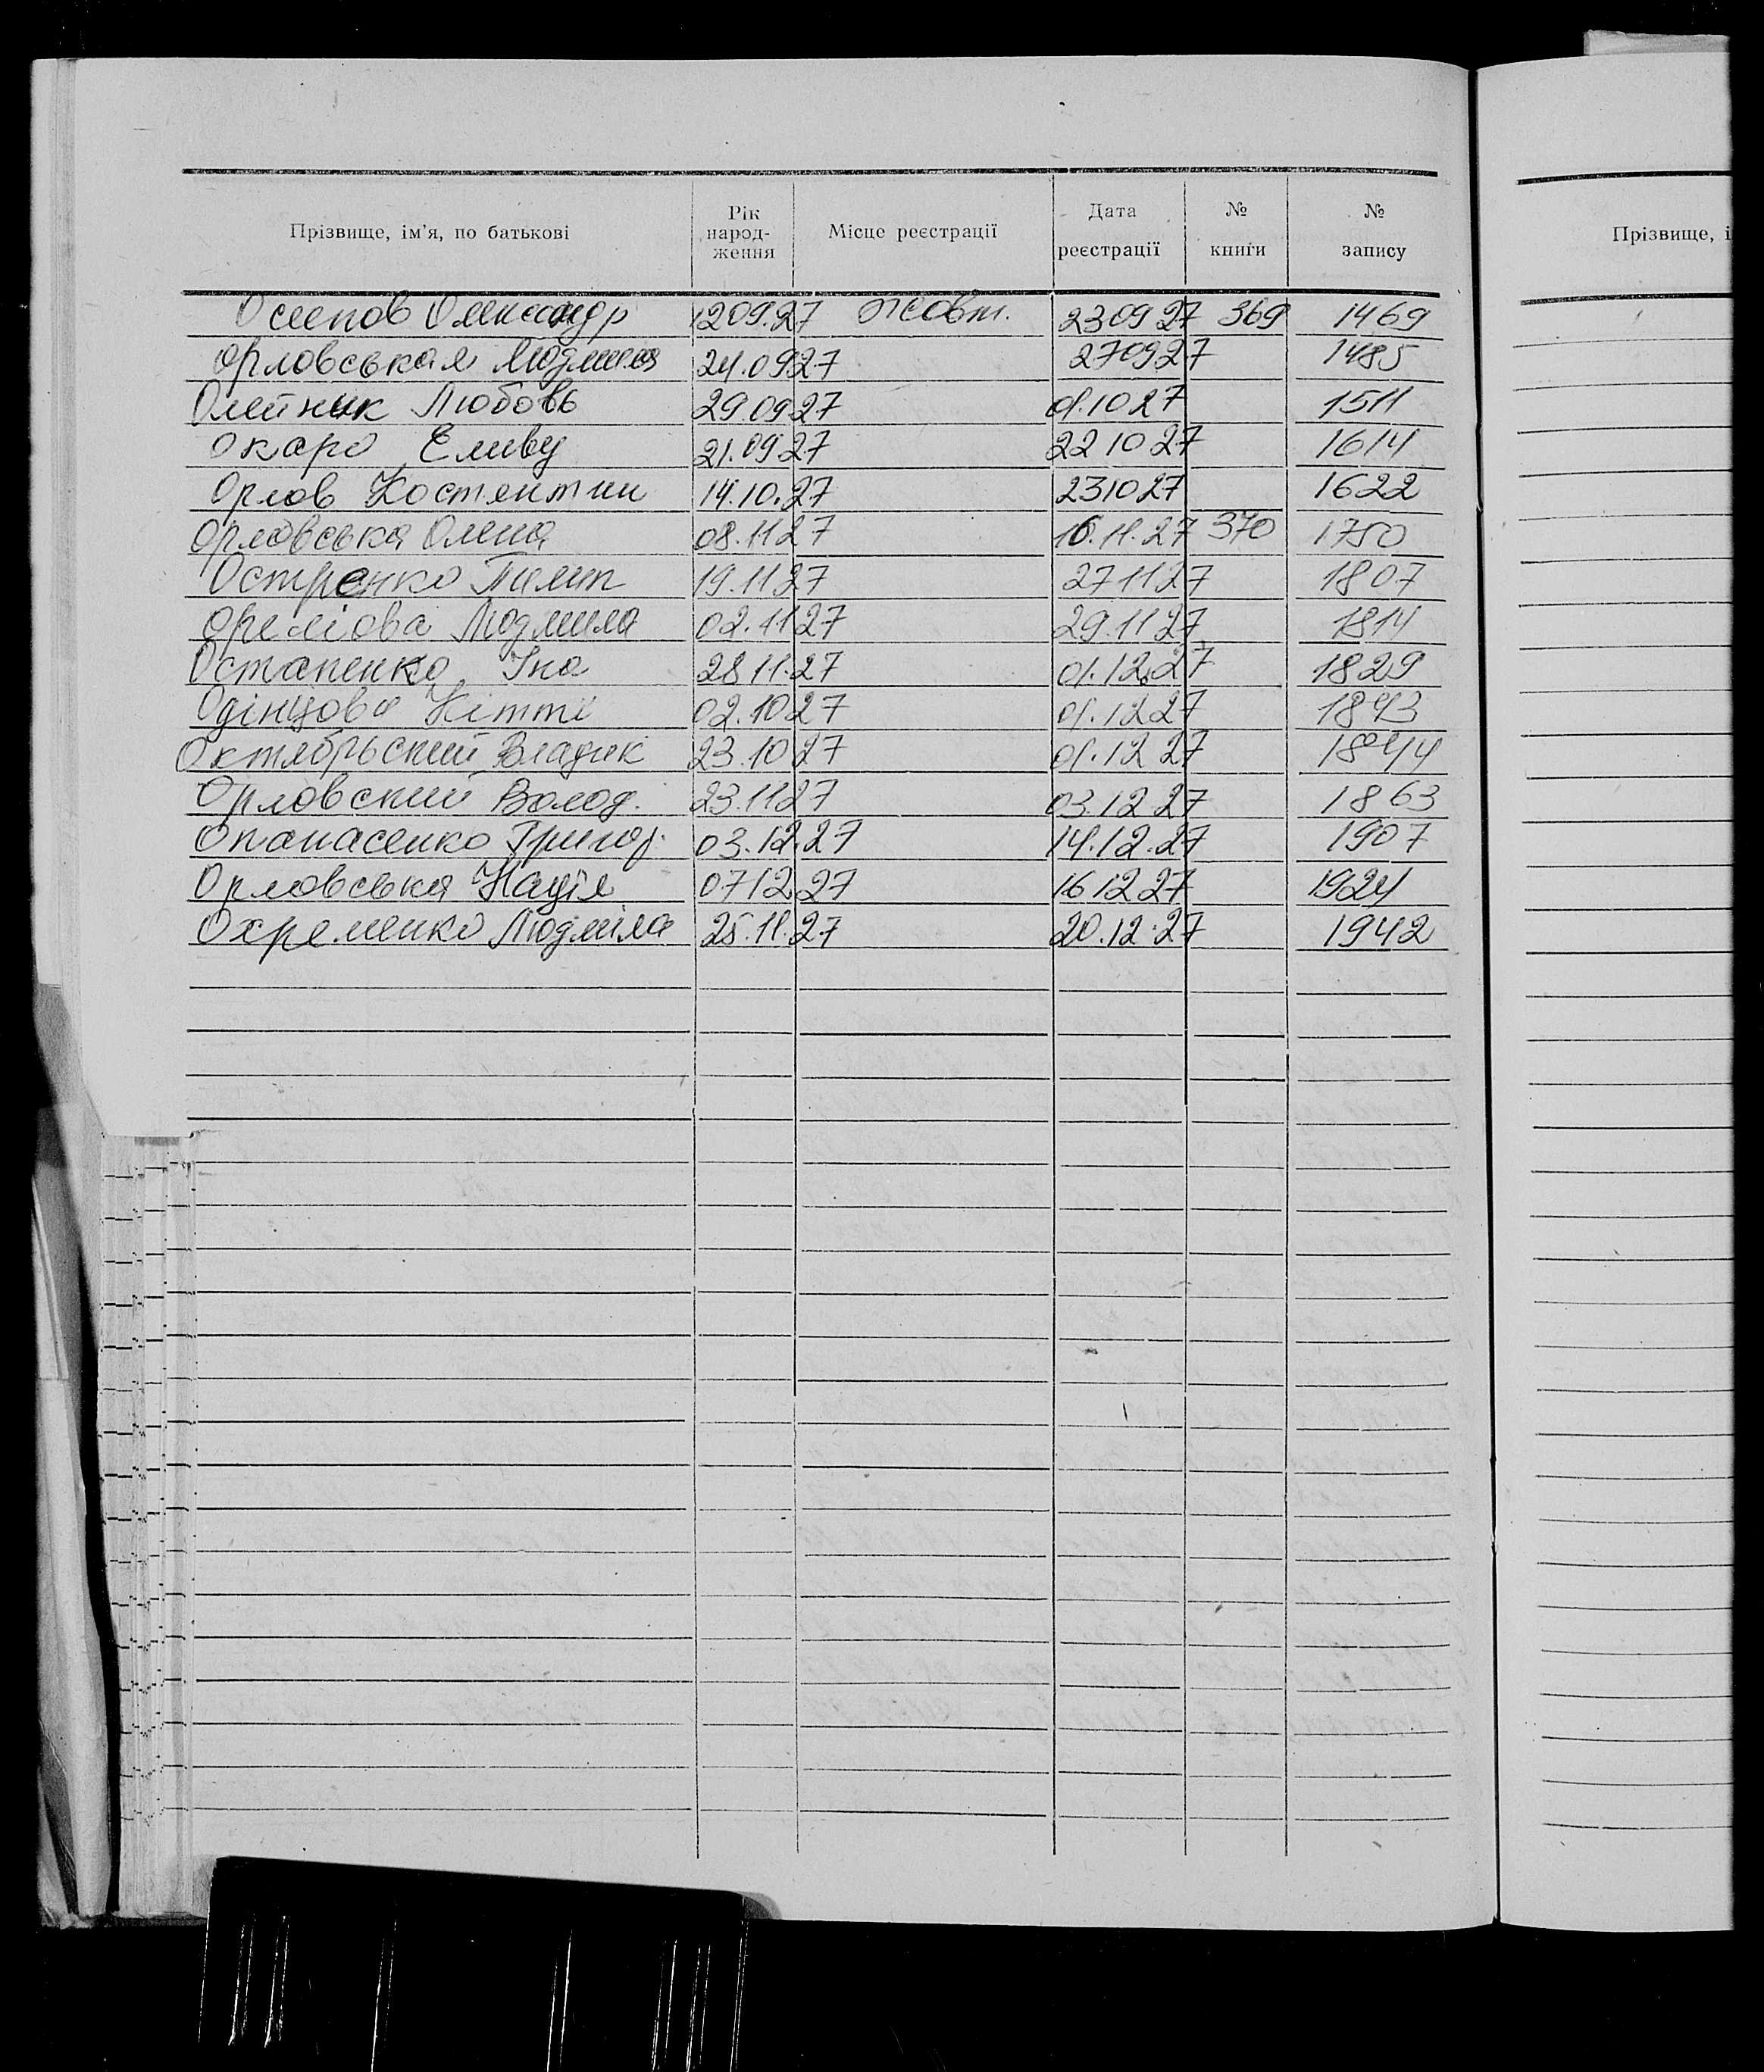 Прізвище, ім'я, по батькові Рік народ-ження Місце реєстрації Дата реєстрації № книги № запису
Осипов Олександр 12 09.27 Жовт. 23 09 27 369 1469
Орловськая Людмила 24.09 27 27 09 27 1485
Олейник Любовь 29.09 27 01.10 27 1511
Окаро 21.09 27 22 10 27 1614
Орлов Костянтин 14.10.27 23 10 27 1622
Орловська Олена 08.11 27 10.11.27 370 1750
Остренко 19.11 27 27 11 27 1807
Людмила 02.11 27 29.11 27 1814
Остапенко Іна 28 11.27 01.12.27 1829
Одінцова Кітті 02.10 27 01.12 27 1843
Октябрьский Владик 23.10 27 01.12 27 1844
Орловский Волод. 23.11 27 03.12 27 1863
Опанасенко Григор. 03.12.27 14.12.27 1907
Орловська Надія 07 12 27 16 12 27 1924
Охременко Людміла 25.11.27 20.12.27 1942
Прізвище, і